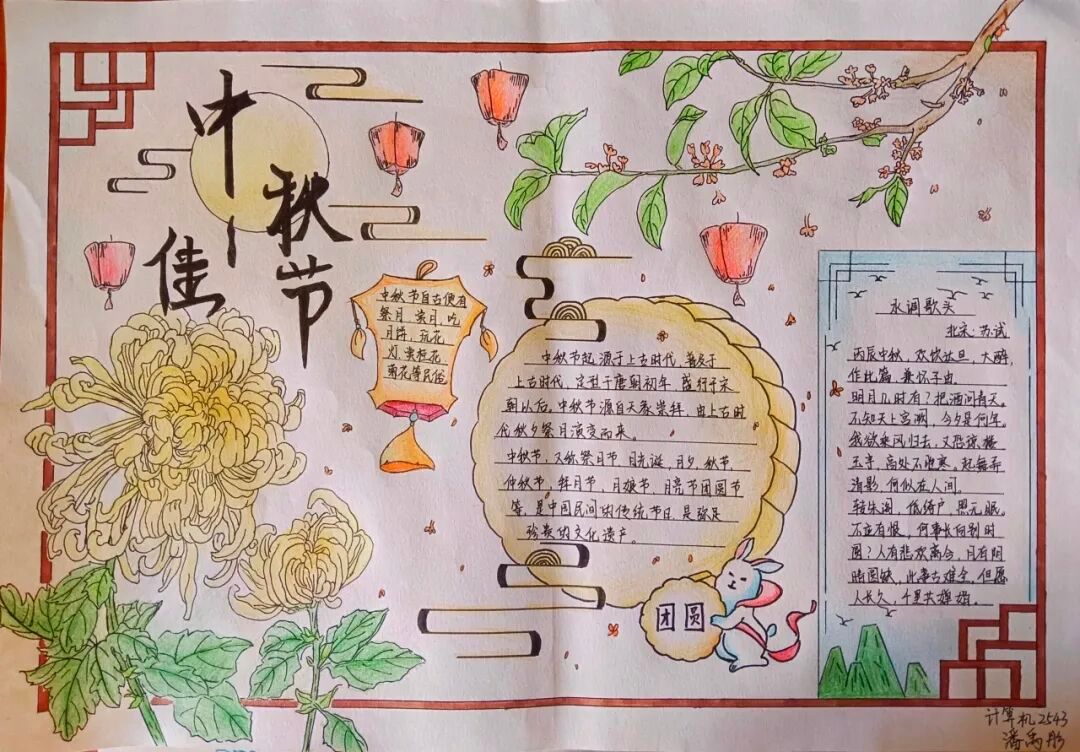 中秋
佳节
中秋节自古便有
祭月、赏月、吃
月饼、玩花
灯、赏桂花、
菊花等民俗
中秋节起源于上古时代，普及于
上古时代，定型于唐朝初年，盛行于宋
朝以后。中秋节源自天象崇拜，由上古时
代秋夕祭月演变而来。
中秋节，又称祭月节、月光诞、月夕、秋节、
仲秋节、拜月节、月娘节、月亮节团圆节
等，是中国民间的传统节日，是弥足
珍贵的文化遗产。
团圆
水调歌头
北宋·苏试
丙辰中秋，欢饮达旦，大醉，
作此篇，兼怀子由。
明月几时有？把酒问青天。
不知天上宫阙，今夕是何年。
我欲乘风归去，又恐琼楼
玉宇，高处不胜寒。起舞弄
清影，何似在人间。
转朱阁，低绮户，照无眠。
不应有恨，何事长向别时
圆？人有悲欢离合，月有阴
晴圆缺，此事古难全，但愿
人长久，千里共婵娟。
计算机2543
潘禹彤